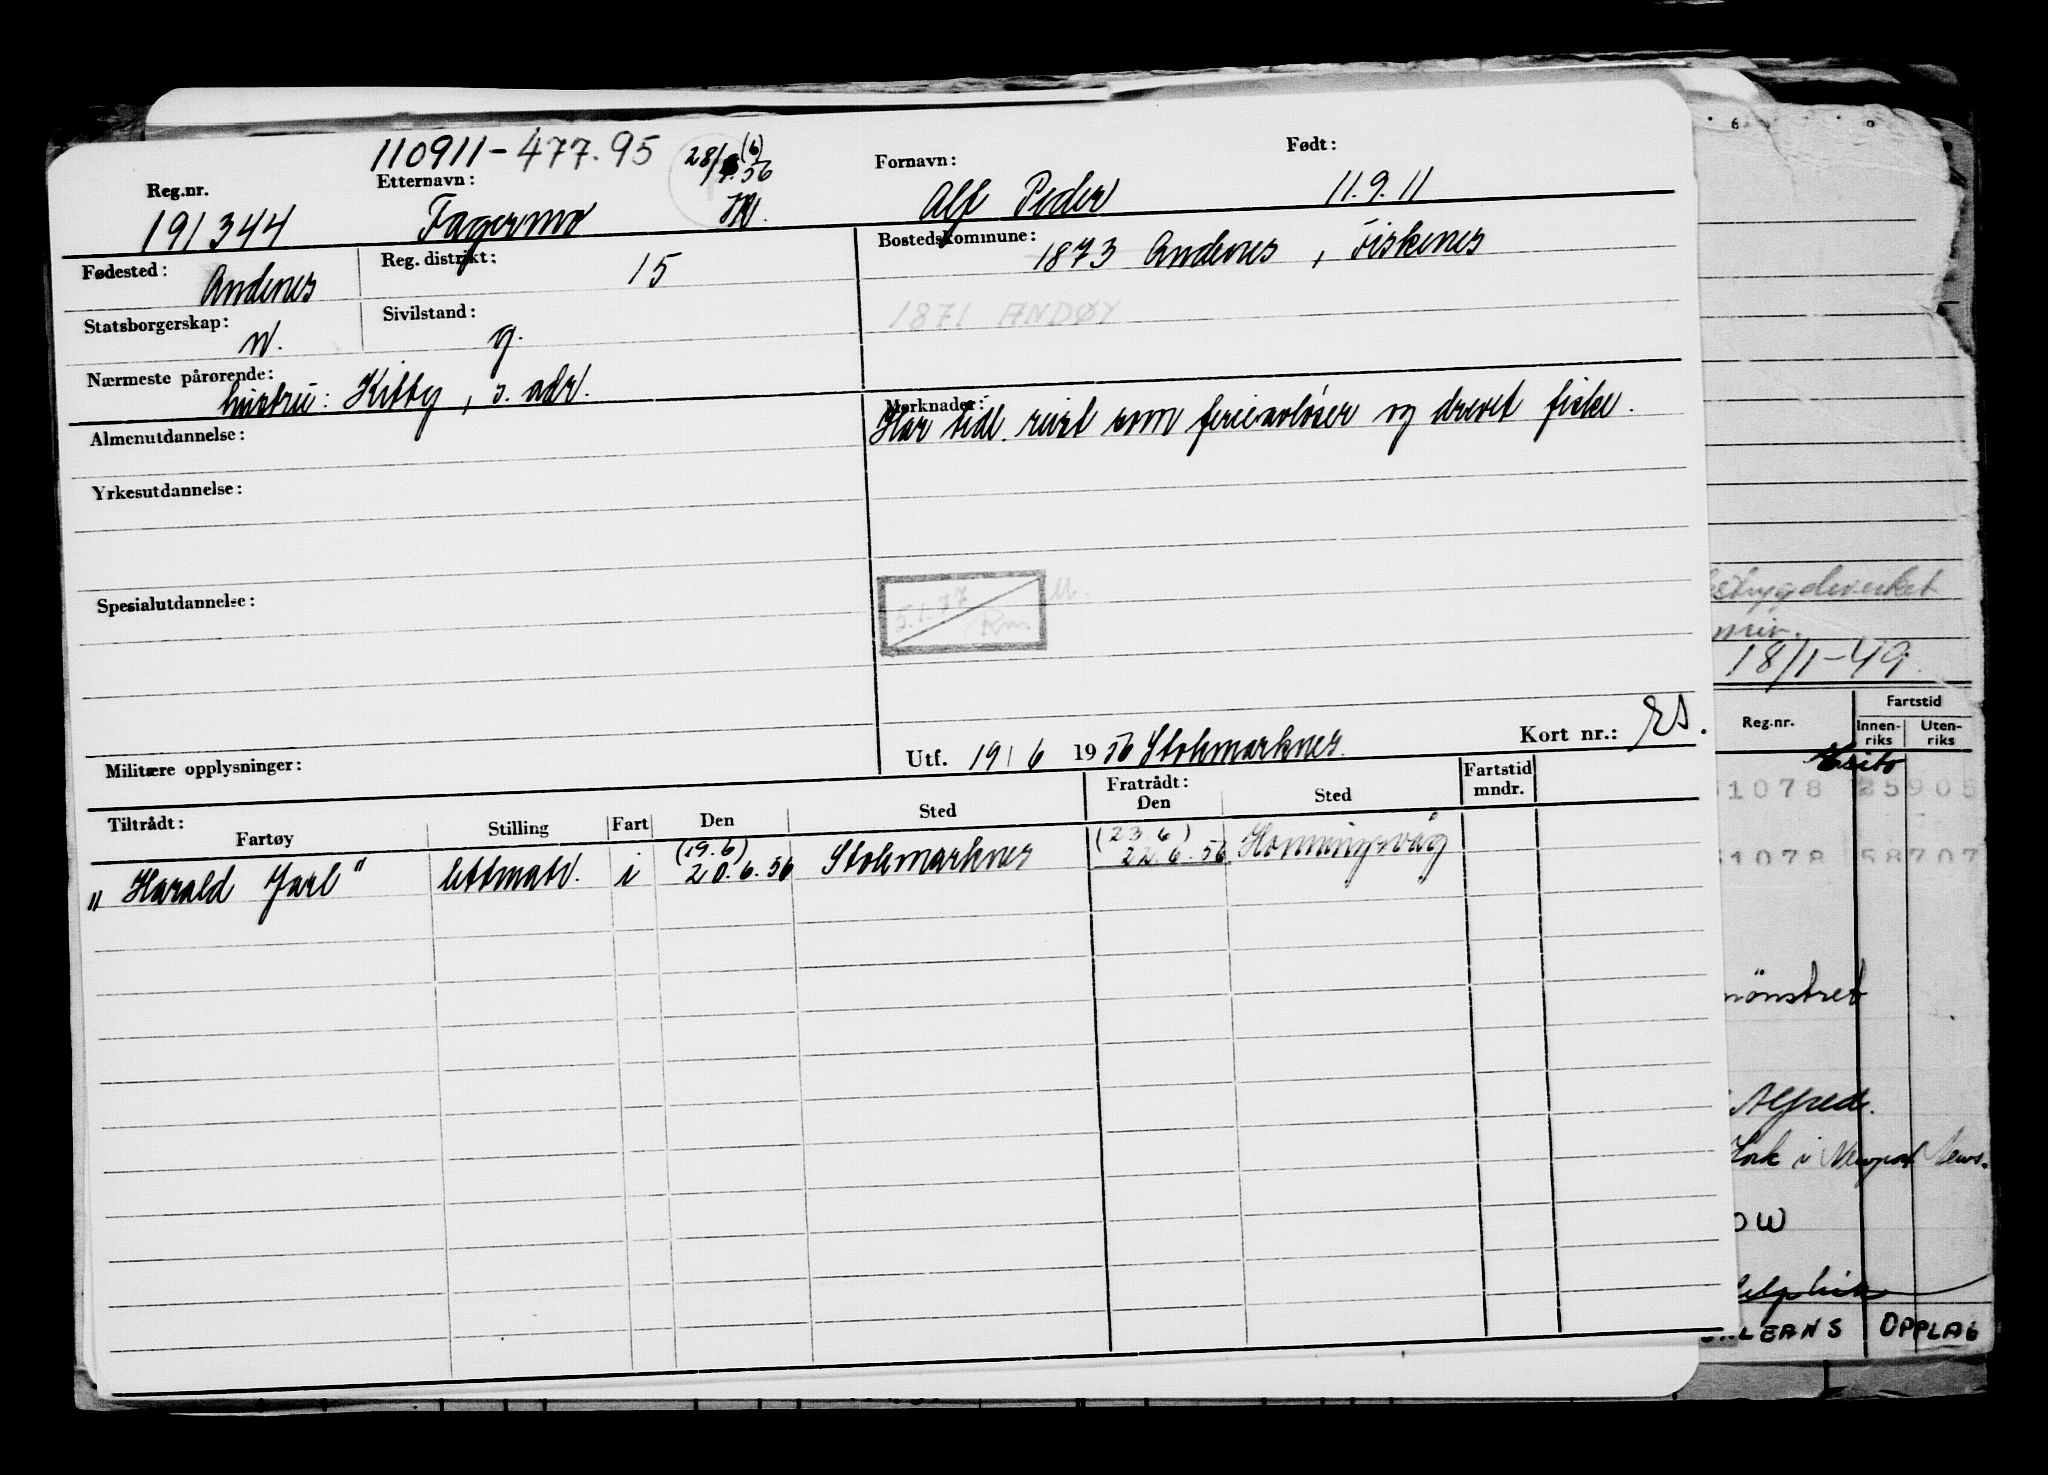 110911-477.95 28/6.56 (6)
Reg.nr. Etternavn: Fornavn: Født:
191344 Fagermo Alf Peder 11.9.11
Fødested: Andenes Reg. distrikt: 15 Bostedskommune: 1873 Andenes, Fiskenes
1871 ANDØY
Statsborgerskap: n. Sivilstand: g.
Nærmeste pårørende: hustru: Kitty, s. adr.
Merknader: Har tidl. reist som ferieavløser og drevet fiske.
Almenutdannelse:
Yrkesutdannelse:
Spesialutdannelse:
5.1.77
Militære opplysninger:
Utf. 19/6 1956 Stokmarknes. Kort nr.:
Tiltrådt: Fratrådt: Fartstid mndr.
Fartøy Stilling Fart Den Sted Den Sted
(19.6) (23.6)
"Harald Jarl" lettmatr. i 20.6.56 Stokmarknes 22.6.56 Honningsvåg
min.
18/1-49
Reg.nr. Fartstid
Innen-riks Uten-riks
1078 25905
1078 58707
mønstret
Alfred.
York i Newport News.
OW
LEANS OPPLAG